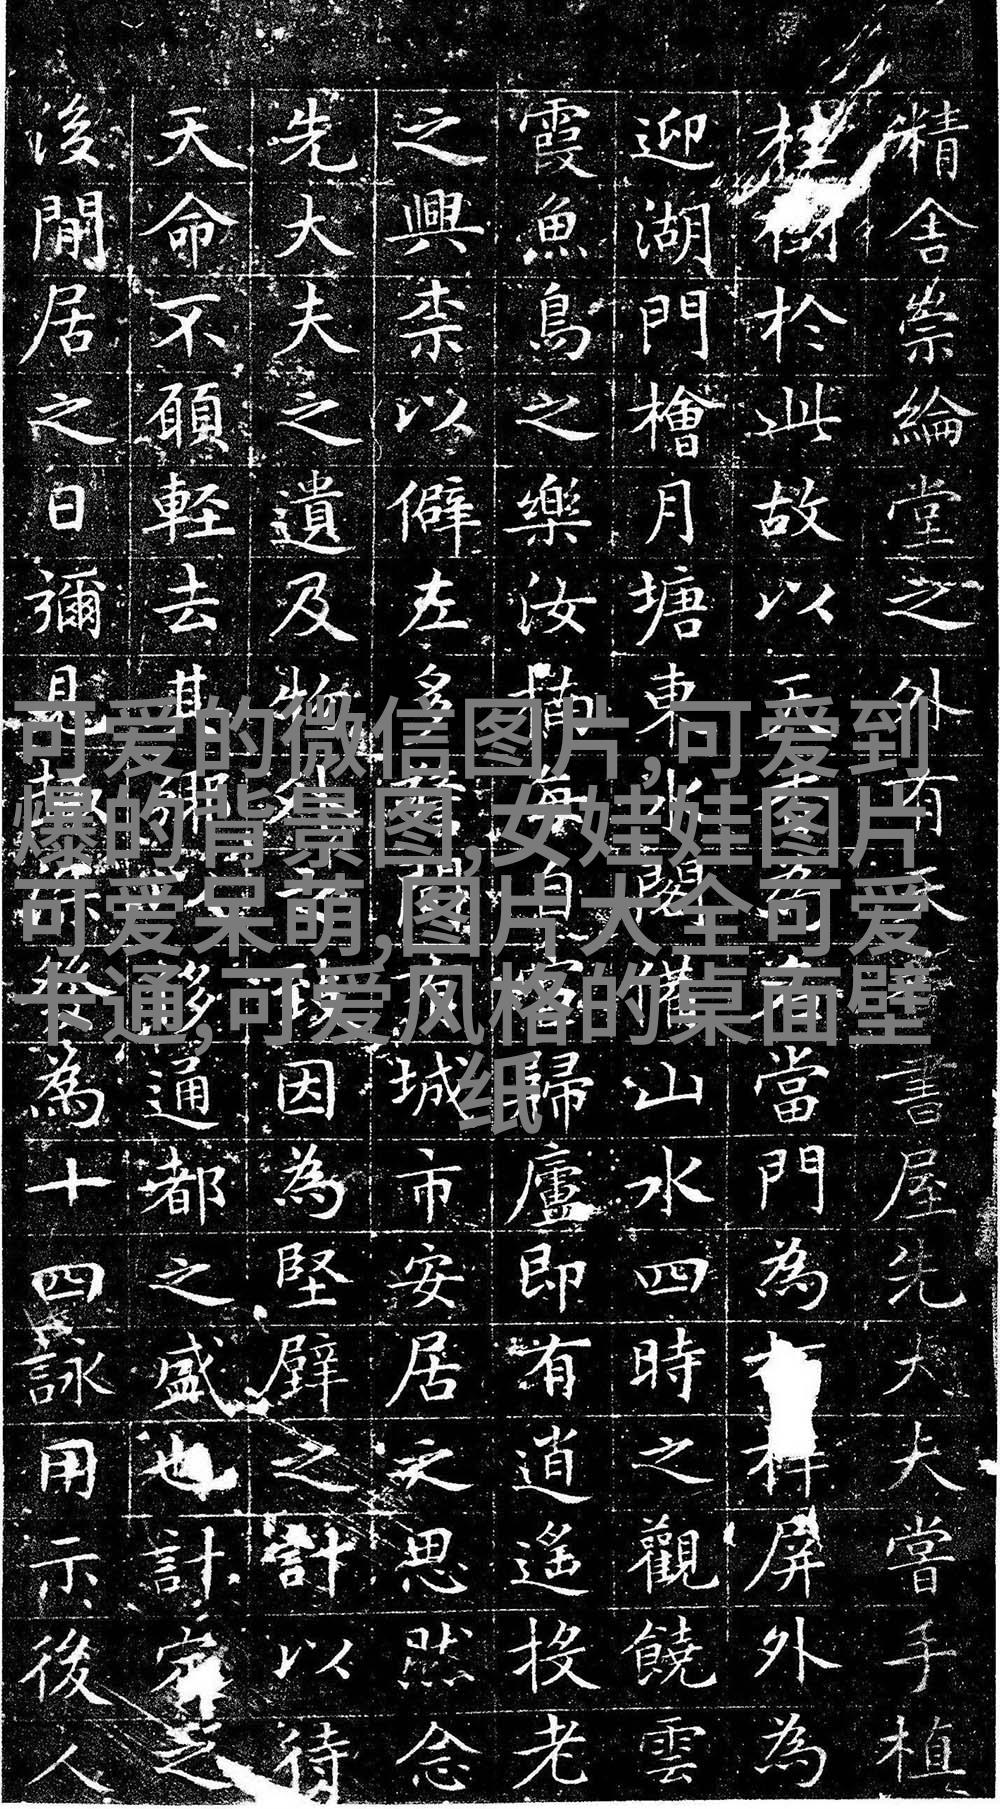 精舍崇綸堂之外有書屋先大夫嘗手植
桂樹於此故以天當門為屏外為
迎湖門檜月塘東山水四時之觀饒雲
霞魚鳥之樂汝楠每自歸廬即有逍遙投老
之興柰以僻左多城市安居之思然念
先大夫之遺及物因為堅壁之計以待
天命不願輕去其移通都之盛也計定之
後閒居之日彌見為十四詠用示後人
可爱的微信图片,可爱到
爆的背景图,女娃娃图片
可爱呆萌,图片大全可爱
卡通,可爱风格的桌面壁
纸